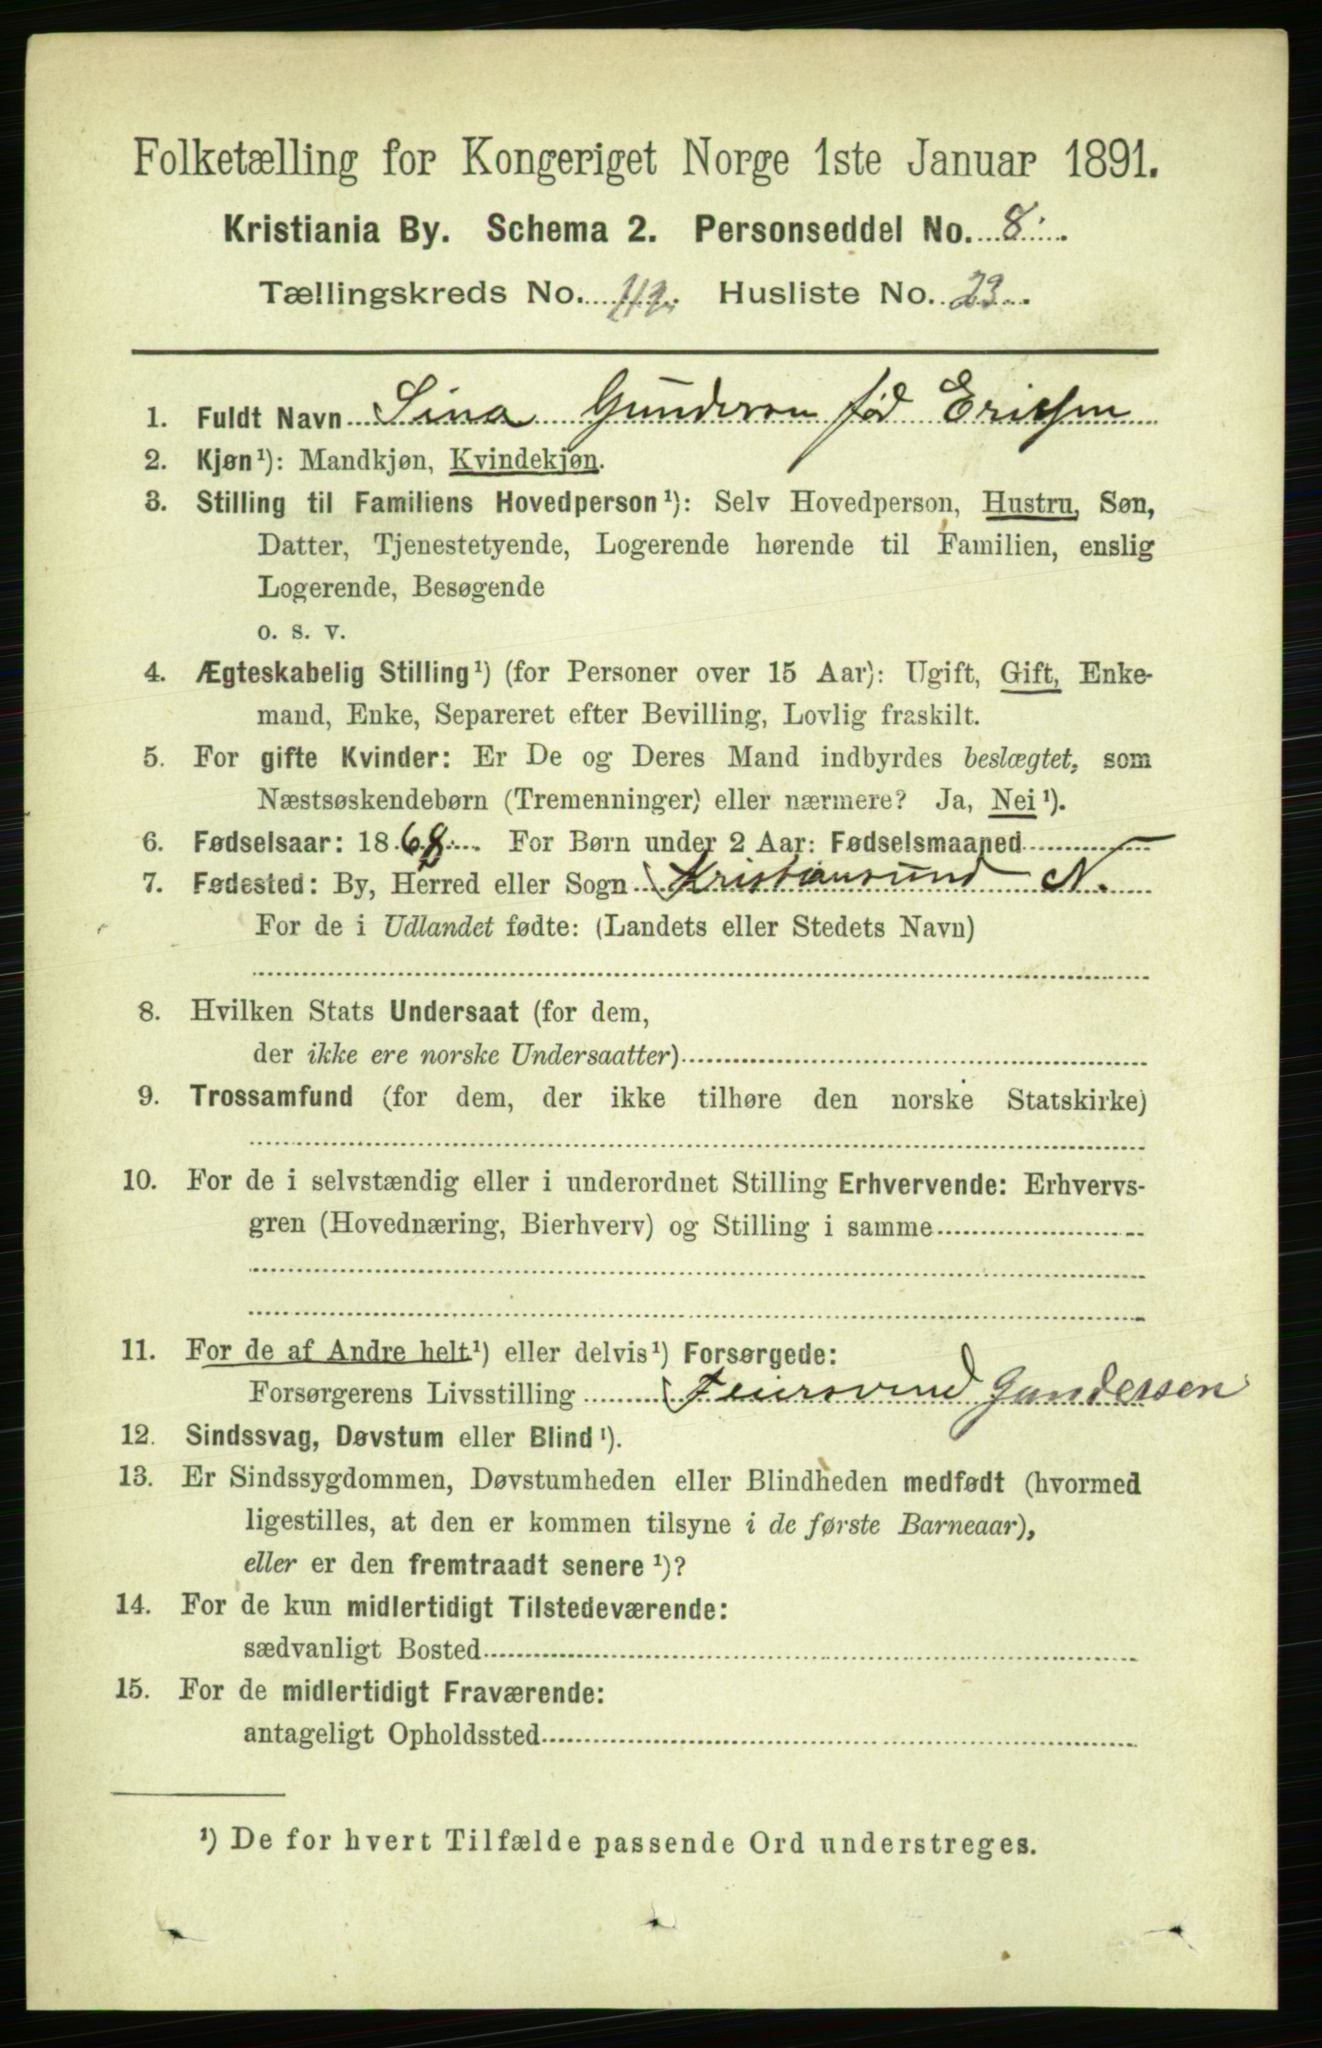 Folketælling for Kongeriget Norge 1ste Januar 1891.
Kristiania By. Schema 2. Personseddel No. 8.
Tællingskreds No. Husliste No. 23.
1. Fuldt Navn Lina Gunderson fød Ericsen
2. Kjøn¹): Mandkjøn, Kvindekjøn.
3. Stilling til Familiens Hovedperson¹): Selv Hovedperson, Hustru, Søn,
Datter, Tjenestetyende, Logerende hørende til Familien, enslig
Logerende, Besøgende
o. s. v.
4. Ægteskabelig Stilling¹) (for Personer over 15 Aar): Ugift, Gift, Enke-
mand, Enke, Separeret efter Bevilling, Lovlig fraskilt.
5. For gifte Kvinder: Er De og Deres Mand indbyrdes beslægtet, som
Næstsøskendebørn (Tremenninger) eller nærmere? Ja, Nei¹).
6. Fødselsaar: 1868. For Børn under 2 Aar: Fødselsmaaned
7. Fødested: By, Herred eller Sogn Kristiansund N.
For de i Udlandet fødte: (Landets eller Stedets Navn)
8. Hvilken Stats Undersaat (for dem,
der ikke ere norske Undersaatter)
9. Trossamfund (for dem, der ikke tilhøre den norske Statskirke)
10. For de i selvstændig eller i underordnet Stilling Erhvervende: Erhvervs-
gren (Hovednæring, Bierhverv) og Stilling i samme
11. For de af Andre helt¹) eller delvis¹) Forsørgede:
Forsørgerens Livsstilling Gundersen
12. Sindssvag, Døvstum eller Blind¹).
13. Er Sindssygdommen, Døvstumheden eller Blindheden medfødt (hvormed
ligestilles, at den er kommen tilsyne i de første Barneaar),
eller er den fremtraadt senere¹)?
14. For de kun midlertidigt Tilstedeværende:
sædvanligt Bosted
15. For de midlertidigt Fraværende:
antageligt Opholdssted
¹) De for hvert Tilfælde passende Ord understreges.